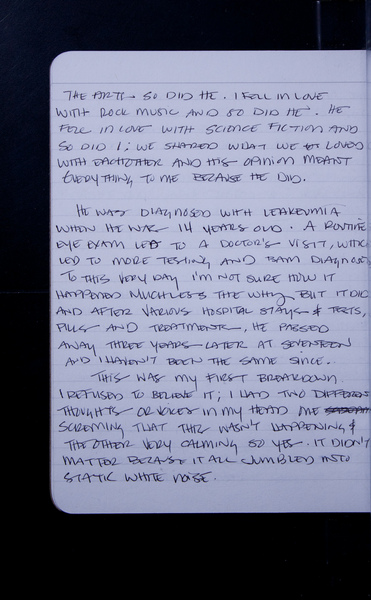 THE ARTS - SO DID HE. I FELL IN LOVE
WITH ROCK MUSIC AND SO DID HE. HE
FELL IN LOVE WITH SCIENCE FICTION AND
SO DID I; WE SHARED WHAT WE LOVED
WITH EACHOTHER AND HIS OPINION MEANT
EVERYTHING TO ME BECAUSE HE DID.
HE WAS DIAGNOSED WITH LEAKEUMIA
WHEN HE WAS 14 YEARS OLD. A ROUTINE
EYE EXAM LED TO A DOCTOR'S VISIT, WHICH
LED TO MORE TESTING AND BAM DIAGNOSIS
TO THIS VERY DAY I'M NOT SURE HOW IT
HAPPENED MUCH LESS THE WHY, BUT IT DID
AND AFTER VARIOUS HOSPITAL STAYS & TESTS,
PILLS AND TREATMENTS, HE PASSED
AWAY THREE YEARS LATER AT SEVENTEEN
AND I HAVEN'T BEEN THE SAME SINCE.
THIS WAS MY FIRST BREAKDOWN.
I REFUSED TO BELIEVE IT; I HAD TWO DIFFERENT
THOUGHTS OR VOICES IN MY HEAD ONE
SCREMING THAT THIS WASN'T HAPPENING &
THE OTHER VERY CALMING SO YES. IT DIDN'T
MATTER BECAUSE IT ALL JUMBLED INTO
STATIC WHITE NOISE.